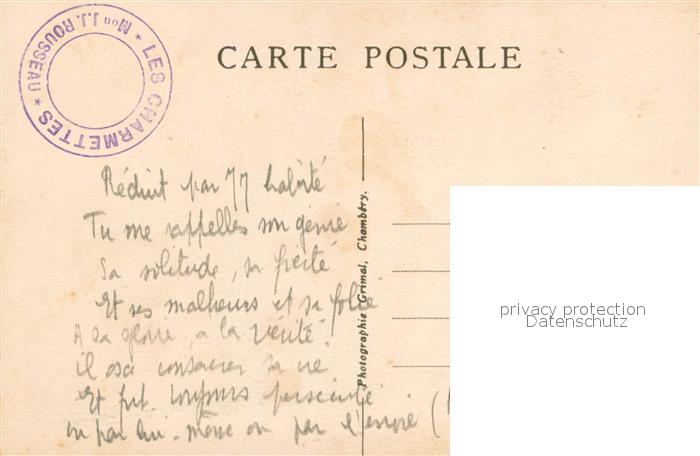 ★ LES CHARMETTES ★ Mon J.J. ROUSSEAU
CARTE POSTALE
Réduit par JJ habité
Tu me rappelles son génie
Sa solitude, sa fierté
Et ses malheurs et sa folie
A sa gloire, a la vérité
il osa consacrer sa vie
Et fut toujours persécuté
ou par lui-même ou par l'envie (
Photographie Grimal, Chambéry.
privacy protection
Datenschutz